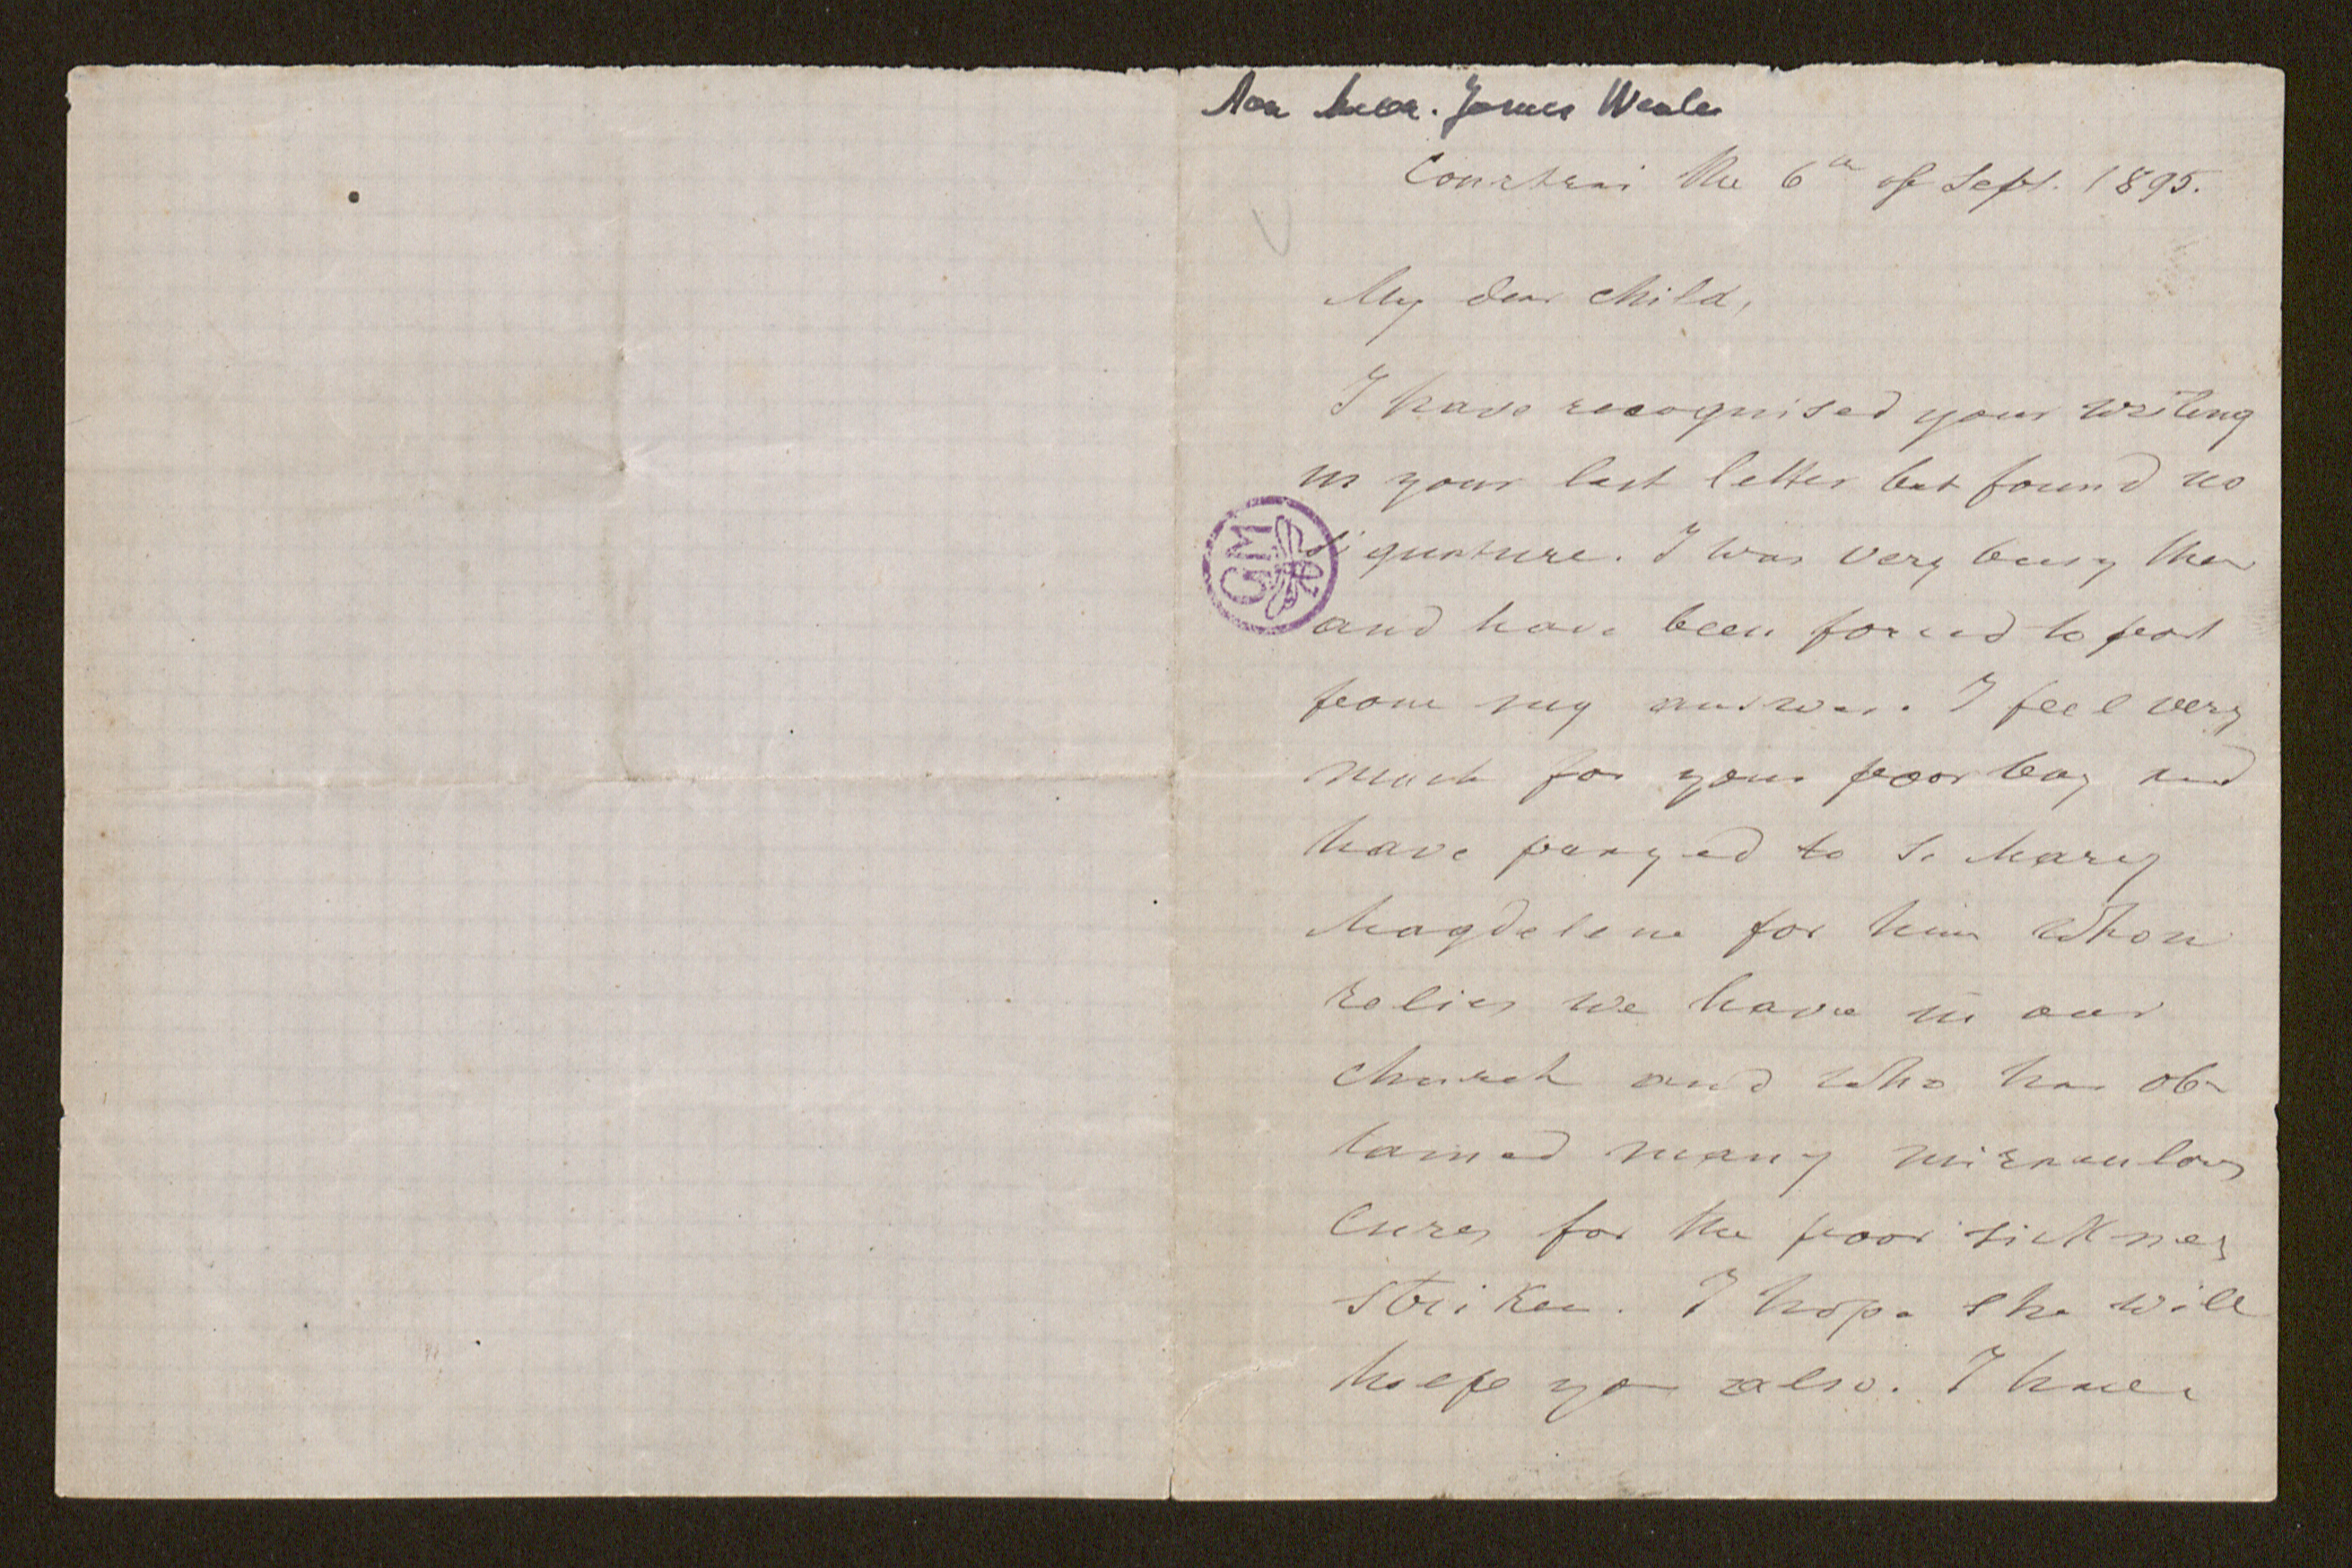 Aan Mevr. James Weale
Courtrai the 6th of Sept. 1895.
My dear child,
I have recognised your writing
in your last letter but found no
signature. I was very busy then
and have been forced to post
pone my answer. I feel very
much for your poor boy and
have prayed to S. Mary
Magdelene for him whom
relics we have in our
church and who has ob-
tained many miraculous
cures for the poor sickness
striken. I hope she will
help you also. I have
GM